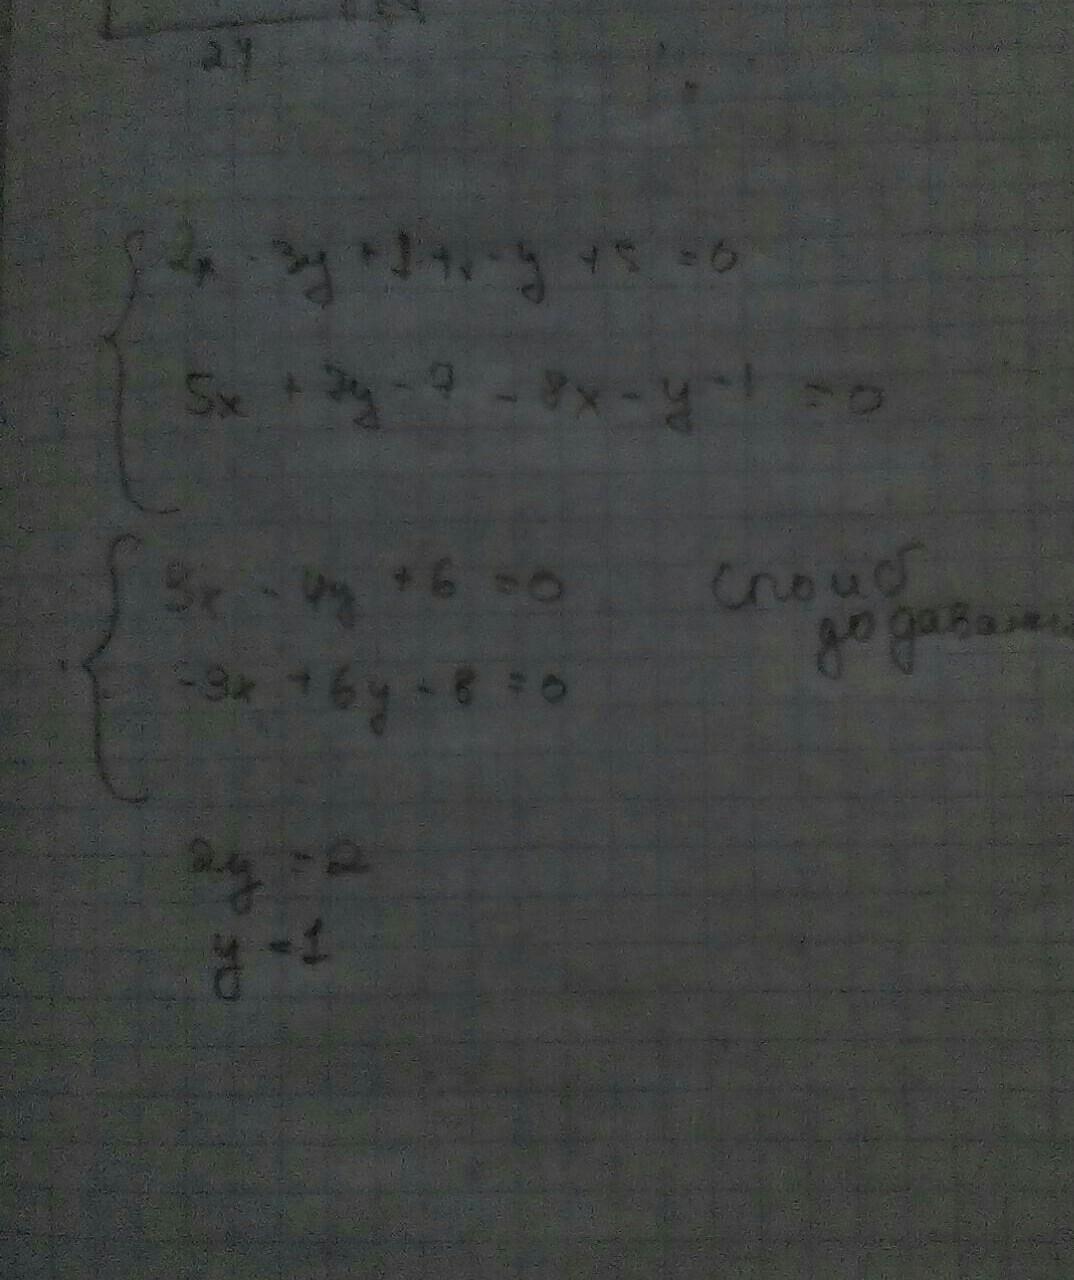 24
2x - 3y + 1 + x - y + 5 = 0
5x + 7y - 7 - 8x - y - 1 = 0
3x - 4y + 6 = 0
спосіб
додавання
-3x + 6y - 8 = 0
2y = 2
y = 1